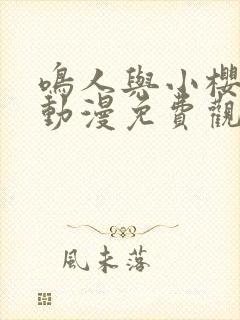 鳴人與小櫻
動漫免費觀
風未落